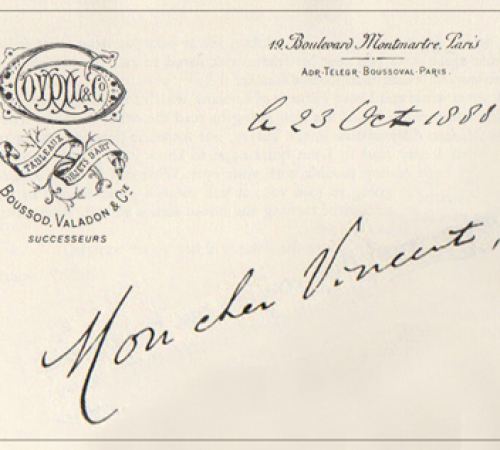 19, Boulevard Montmartre, Paris
ADR. TELEGR. BOUSSOVAL-PARIS.
le 23 Oct 1888
GOUPIL & Cº
TABLEAUX
OBJETS D'ART
BOUSSOD, VALADON & Cie
SUCCESSEURS
Mon cher Vincent,